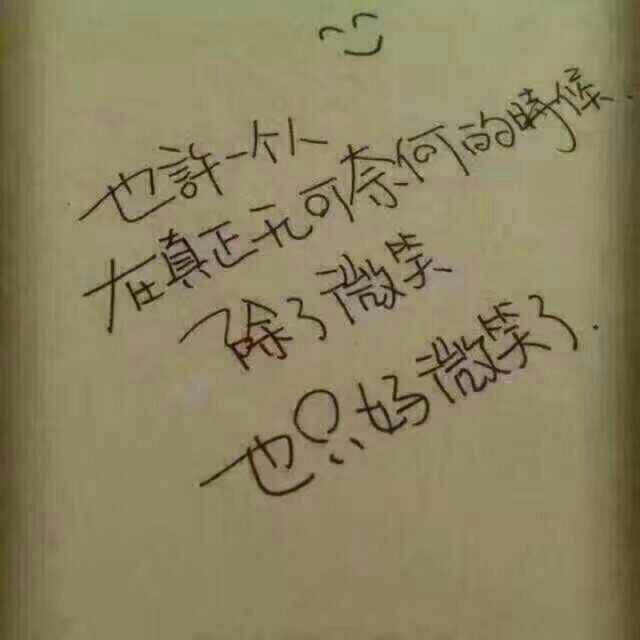 也許一个人
在真正无可奈何的時候、
除了微笑
也只好微笑了.